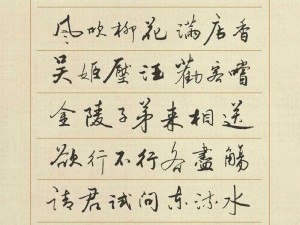 风吹柳花滿店香
吴姬壓酒勸客嚐
金陵子弟来相送
欲行不行各盡觴
请君试问东流水